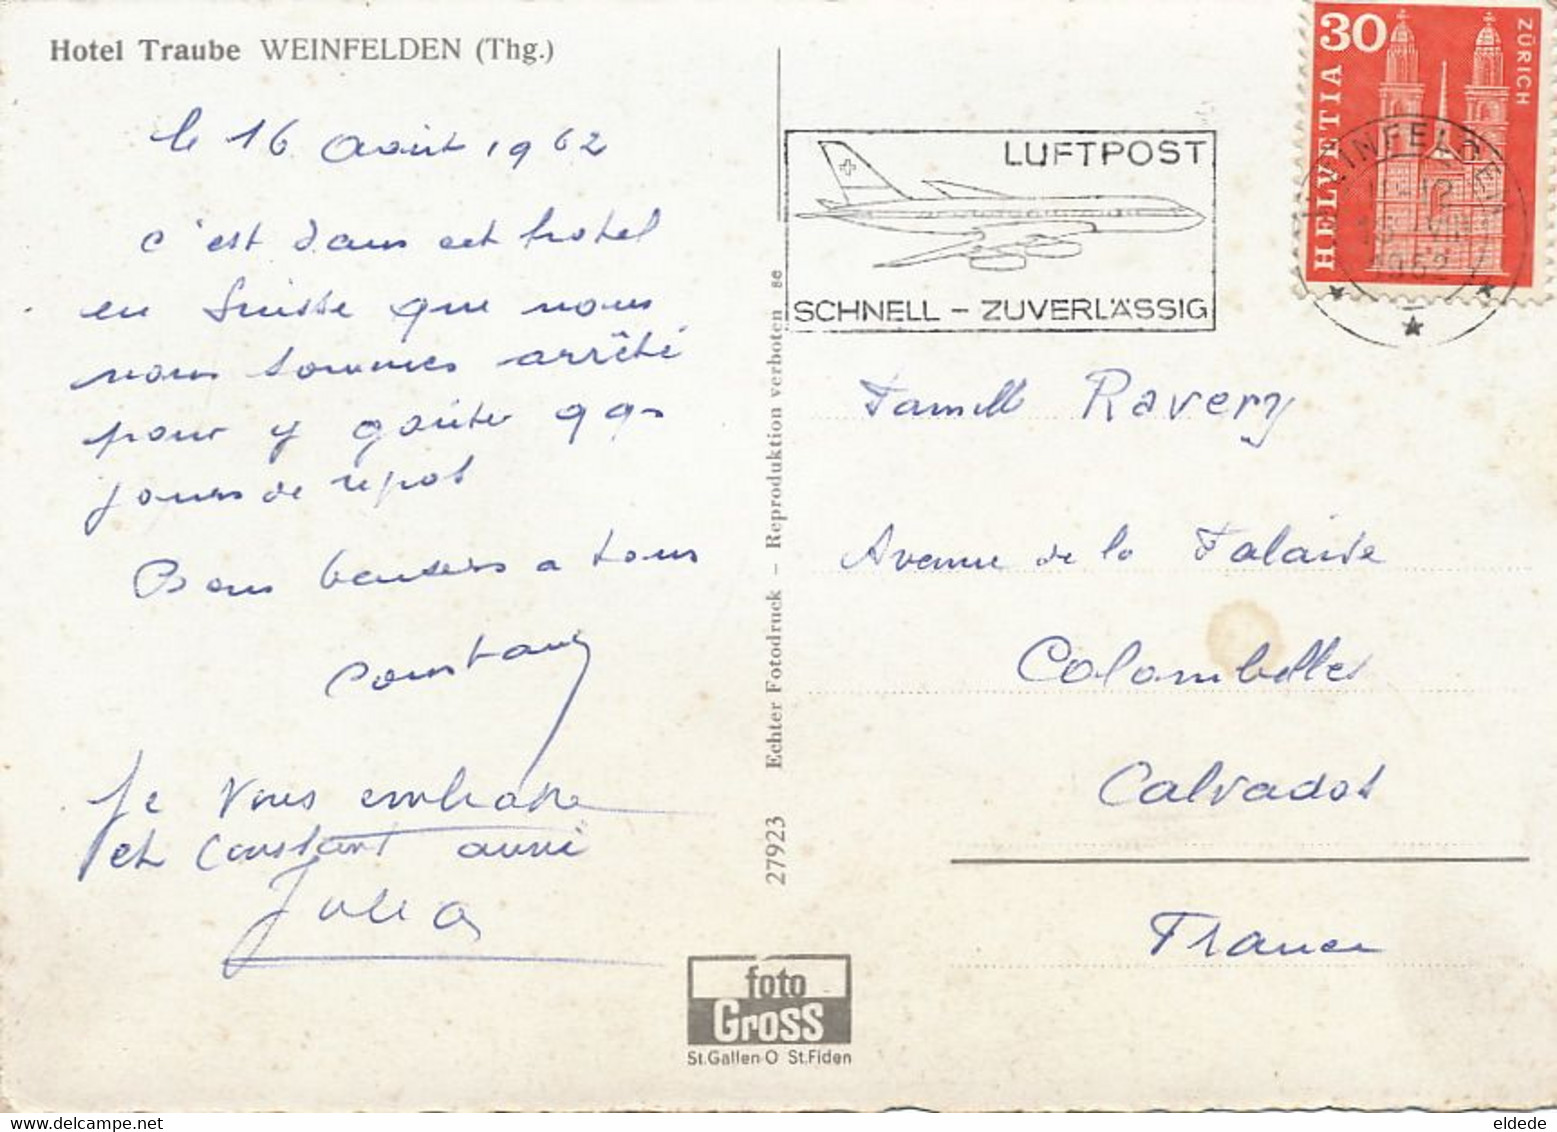 Hotel Traube WEINFELDEN (Thg.)
le 16 Août 1962
c'est dans cet hotel
en Suisse que nous
nous sommes arrêté
pour y goûter qqs
jours de repos
Bons baisers a tous
Constant
Je vous embrasse
et Constant aussi
Julia
Echter Fotodruck – Reproduktion verboten
27923
foto
Gross
St.Gallen-O St.Fiden
LUFTPOST
SCHNELL – ZUVERLÄSSIG
30
HELVETIA
ZÜRICH
WEINFELDEN
VIII
1962
Famille Ravery
Avenue de la Falaise
Colombelles
Calvados
France
www.delcampe.net
eldede